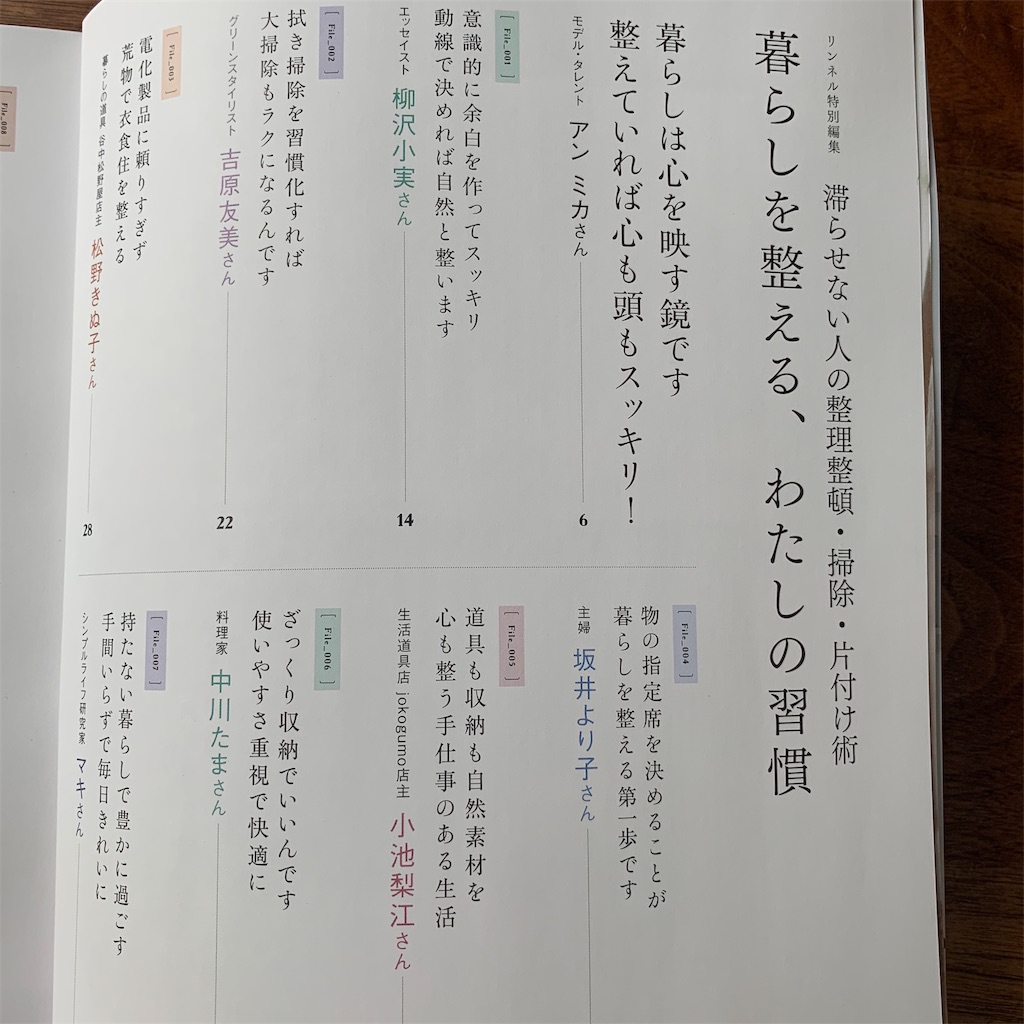 リンネル特別編集
滞らせない人の整理整頓・掃除・片付け術
暮らしを整える、わたしの習慣
暮らしは心を映す鏡です
整えていれば心も頭もスッキリ！
モデル・タレント アン ミカさん
6
[ File_001 ]
意識的に余白を作ってスッキリ
動線で決めれば自然と整います
エッセイスト 柳沢小実さん
14
[ File_002 ]
拭き掃除を習慣化すれば
大掃除もラクになるんです
グリーンスタイリスト 吉原友美さん
22
[ File_003 ]
電化製品に頼りすぎず
荒物で衣食住を整える
暮らしの道具 谷中松野屋店主 松野きぬ子さん
28
[ File_004 ]
物の指定席を決めることが
暮らしを整える第一歩です
主婦 坂井より子さん
[ File_005 ]
道具も収納も自然素材を
心も整う手仕事のある生活
生活道具店 jokogumo店主 小池梨江さん
[ File_006 ]
ざっくり収納でいいんです
使いやすさ重視で快適に
料理家 中川たまさん
[ File_007 ]
持たない暮らしで豊かに過ごす
手間いらずで毎日きれいに
シンプルライフ研究家 マキさん
[ File_008 ]